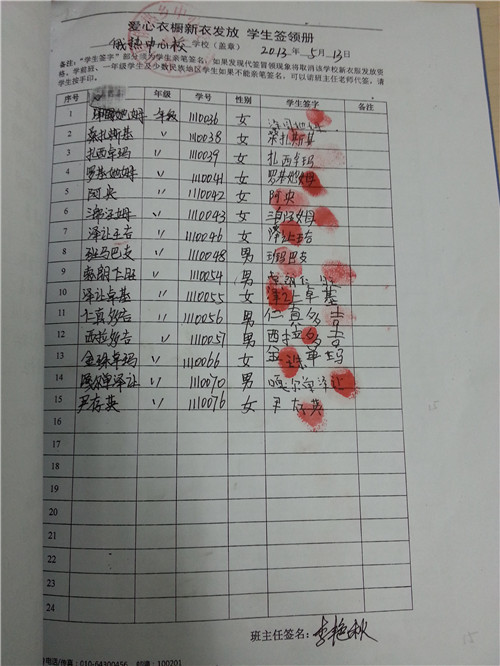 爱心衣橱新衣发放 学生签领册
俄热中心校 学校（盖章） 2013年 5月 13日
备注："学生签字"部分须为学生亲笔签名；如果发现代签冒领现象将取消该学校新衣服发放资
格。学前班、一年级学生及少数民族地区学生如果不能亲笔签名，可以请班主任老师代签，请
学生按手印。
序号 年级 学号 性别 学生签字 备注
1 年级 1110036 女
2 桑扎斯基 〃 1110038 女 桑扎斯基
3 扎西卓玛 〃 1110039 女 扎西卓玛
4 罗基她姆 〃 1110041 女 罗基她姆
5 阿央 〃 1110042 女 阿央
6 〃 1110043 女
7 泽让王吉 〃 1110046 女 泽让王吉
8 班马巴支 〃 1110048 男 班玛巴支
9 〃 1110054 男
10 泽让卓基 〃 1110055 女 泽让卓基
11 仁真多吉 〃 1110056 男 仁真多吉
12 西拉多吉 〃 1110057 男 西拉多吉
13 金珠卓玛 〃 1110066 女 金珠卓玛
14 嘎尔单泽让 〃 1110070 男 嘎尔单泽让
15 尹存英 〃 1110076 女 尹存英
16
17
18
19
20
21
22
23
24
班主任签名：李艳秋
电话/传真：010-64300456 邮编：100201